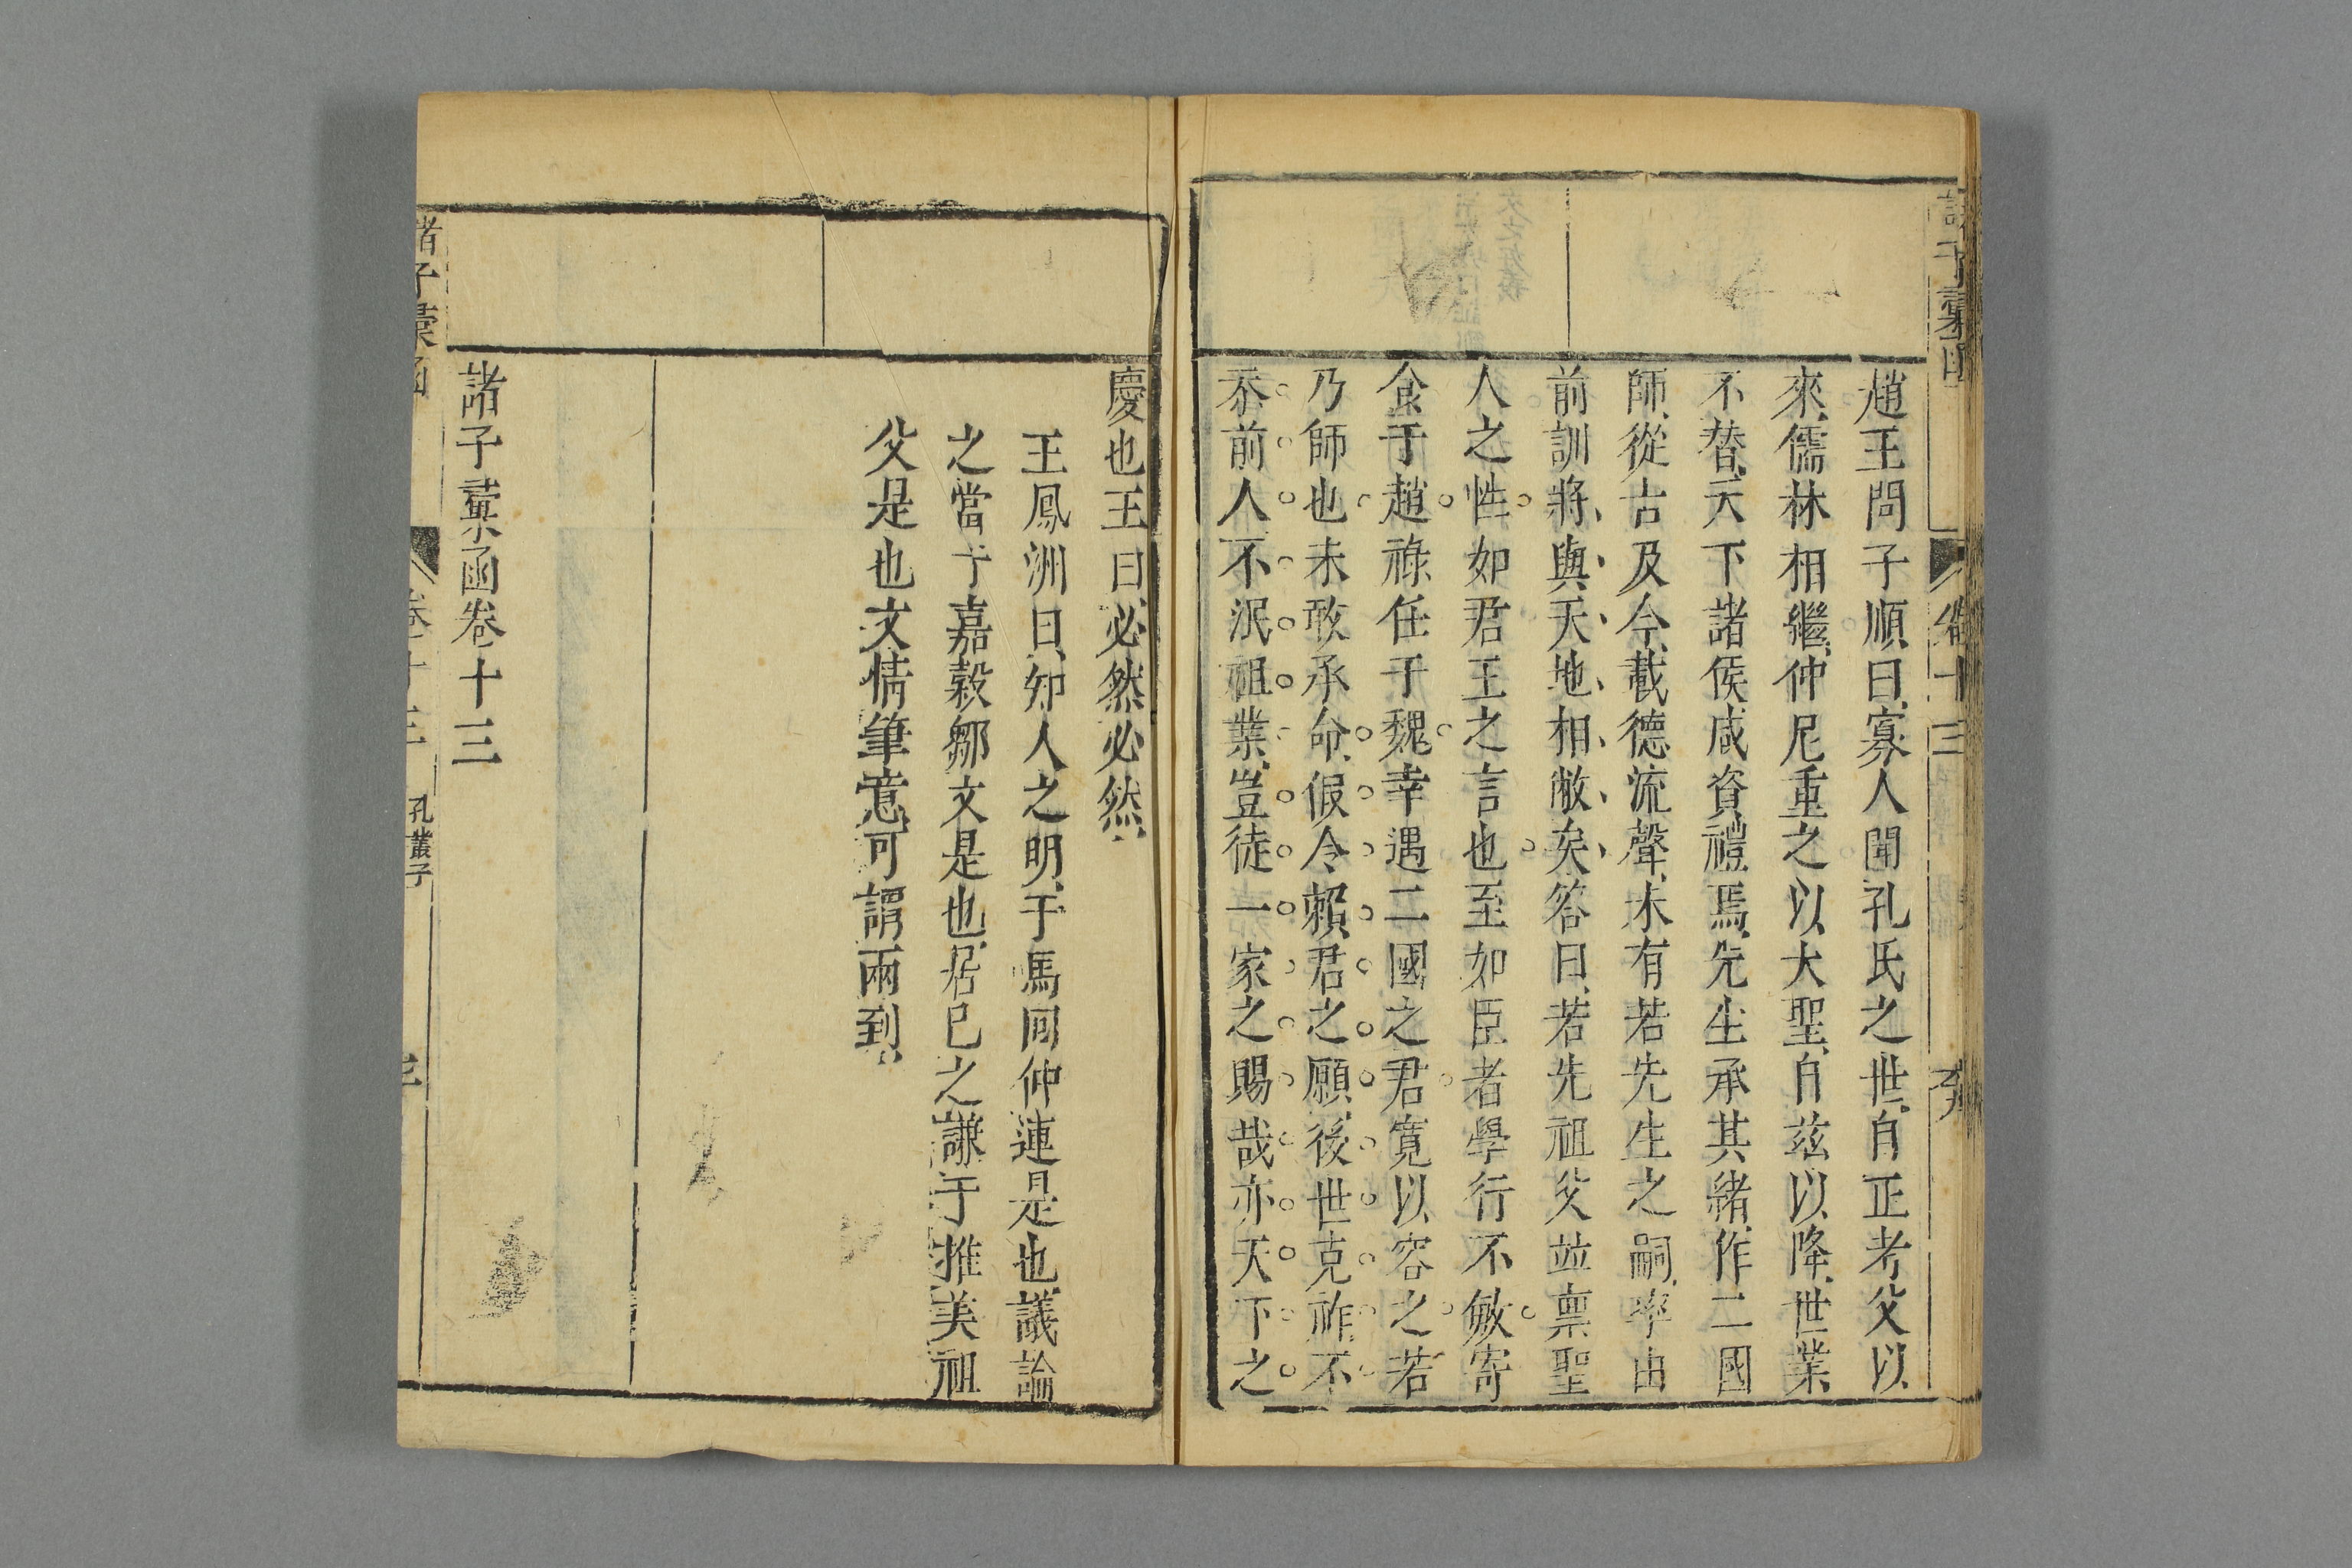 趙王問子順曰寡人聞孔氏之世自正考父以
來儒林相繼仲尼重之以大聖自兹以降世業
不替天下諸侯咸資禮焉先生承其緒作二國
師從古及今載德流聲未有若先生之嗣率由
前訓將與天地相敝矣答曰若先祖父並禀聖
人之性如君王之言也至如臣者學行不敏寄
食于趙祿任于魏幸遇二國之君寬以容之若
乃師也未敢承命假令賴君之願後世克祚不
忝前人不泯祖業豈徒一家之賜哉亦天下之
慶也王曰必然必然
王鳳洲曰知人之明于馬回仲連是也議論
之當于嘉穀鄒文是也居已之謙于推美祖
父是也文情筆意可謂兩到
諸子彚函卷十三
諸子彚函
卷十三
孔叢子